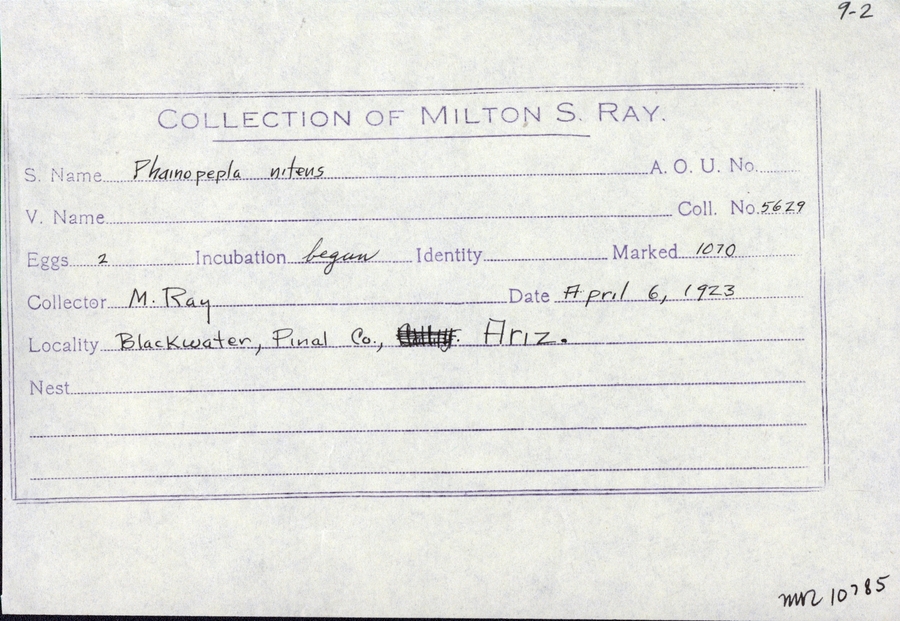 9-2
COLLECTION OF MILTON S. RAY.
S. Name Phainopepla nitens A. O. U. No.
V. Name Coll. No. 5629
Eggs 2 Incubation begun Identity Marked 1070
Collector M. Ray Date April 6, 1923
Locality Blackwater, Pinal Co., Ariz.
Nest
10785